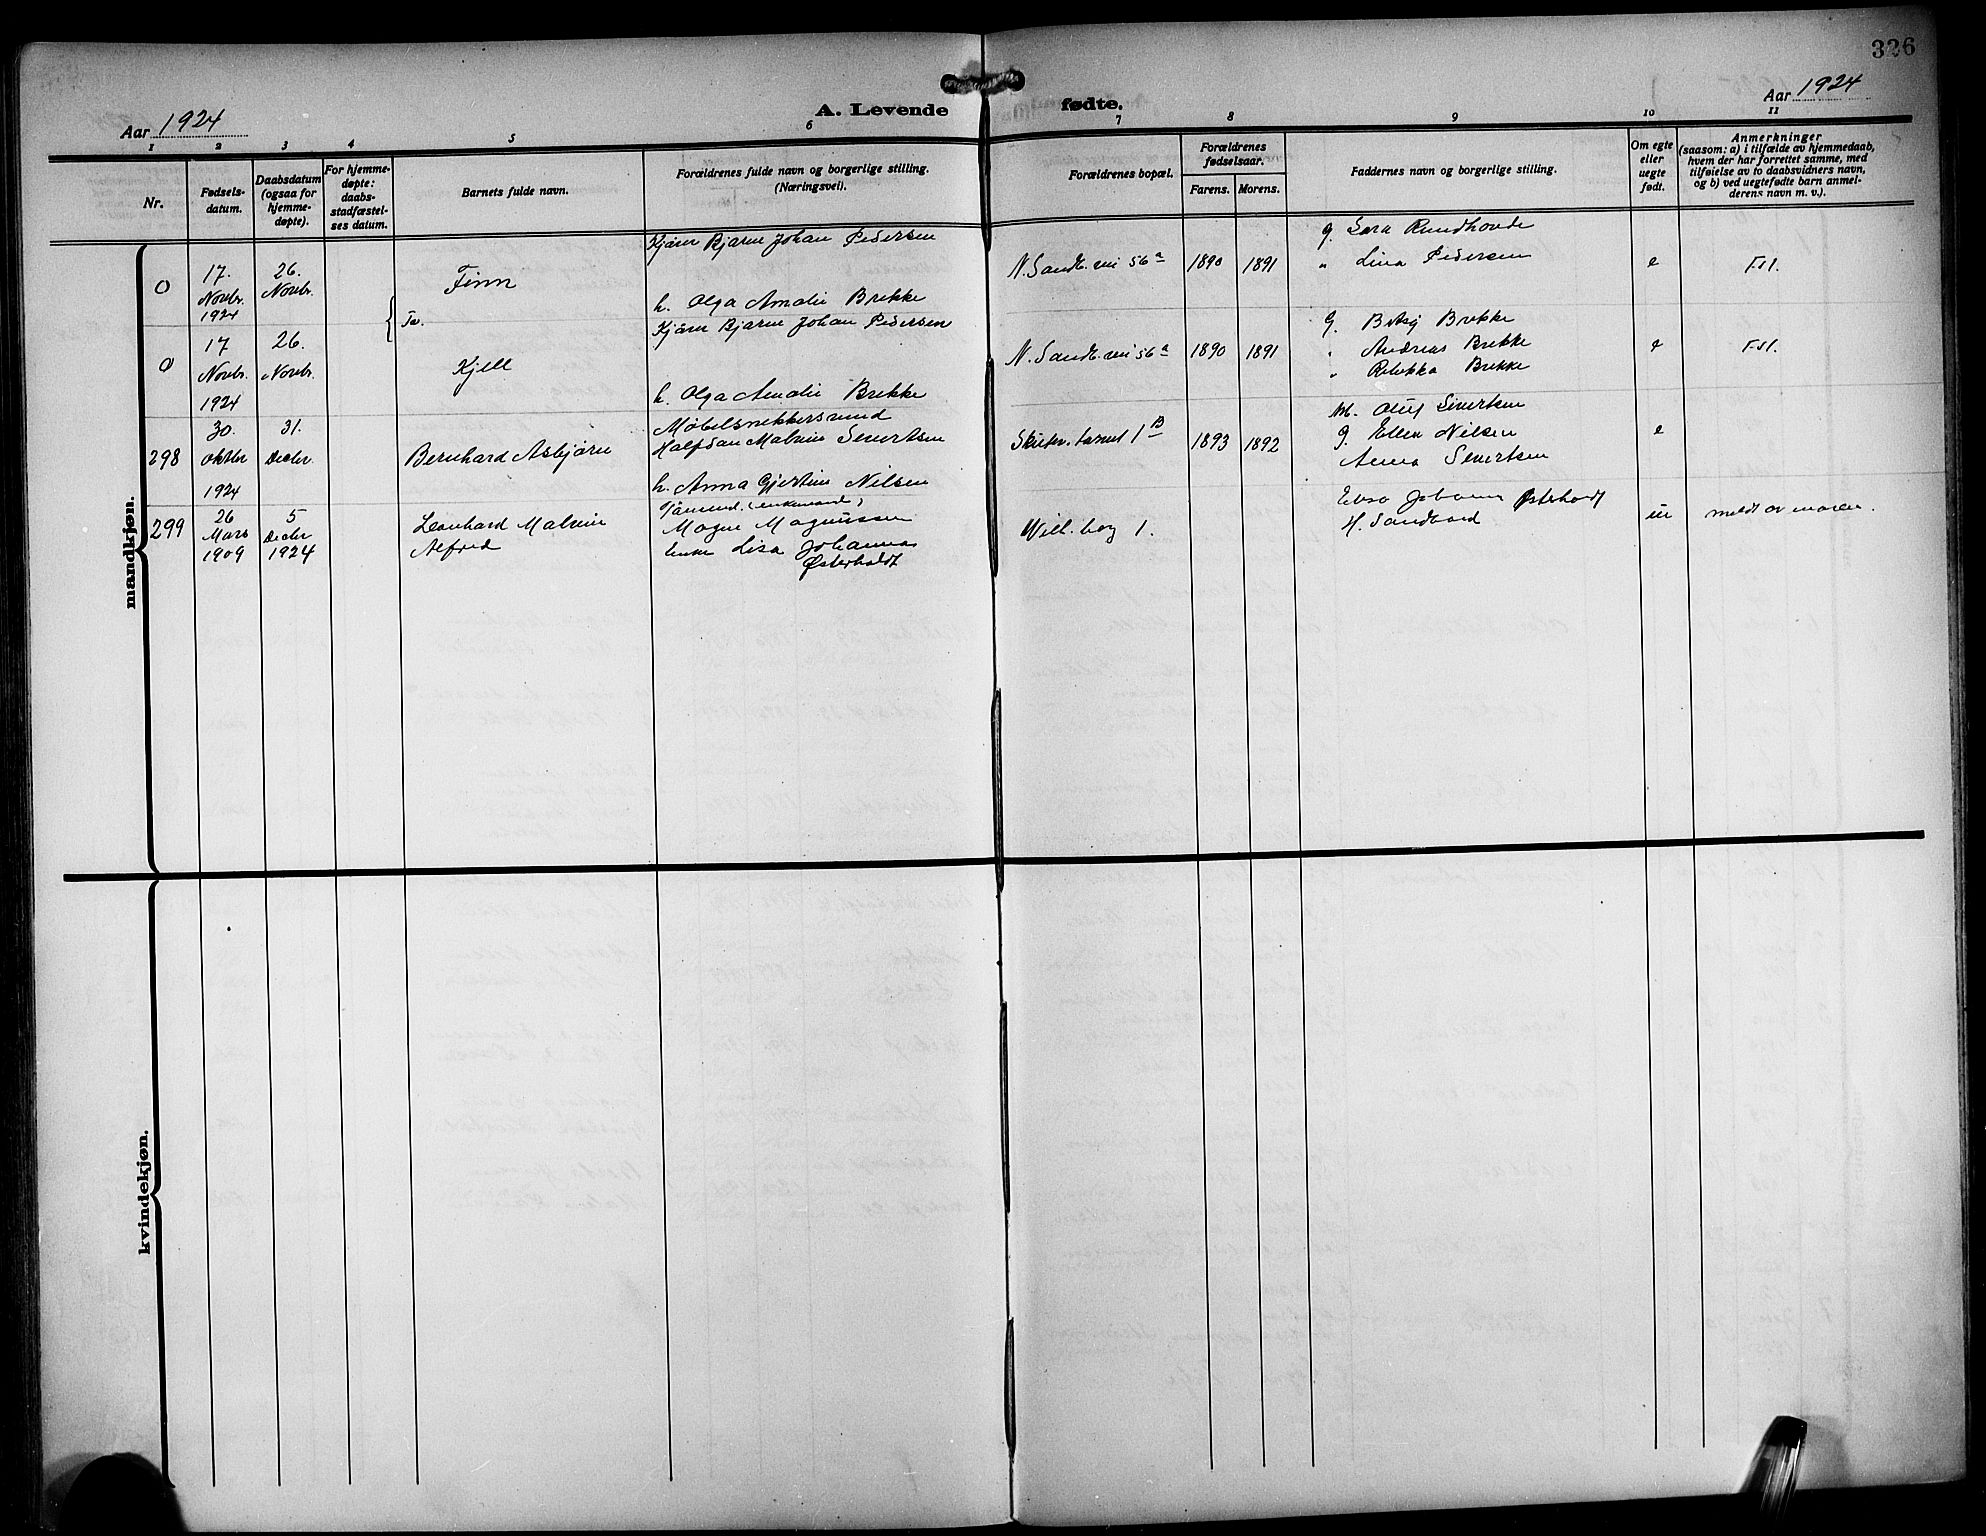 326
Aar 1924
A. Levende fødte.
Aar 1924
1 2 3 4 5 6 7 8 9 10 11
Nr.
Fødsels-
datum.
Daabsdatum
(ogsaa for
hjemme-
døpte).
For hjemme-
døpte:
daabs-
stadfæstel-
ses datum.
Barnets fulde navn.
Forældrenes fulde navn og borgerlige stilling.
(Næringsvei).
Forældrenes bopæl.
Forældrenes
fødselsaar.
Farens. Morens.
Faddernes navn og borgerlige stilling.
Om egte
eller
uegte
født.
Anmerkninger
(saasom: a) i tilfælde av hjemmedaab,
hvem der har forrettet samme, med
tilføielse av to daabsvidners navn,
og b) ved uegtefødte barn anmel-
derens navn m. v.).
mandkjøn.
0
17.
Novbr.
1924
26.
Novbr.
Finn
Kjører Bjarne Johan Pedersen
h. Olga Amalie Brekke
N. Sandv. vei 56a
1890 1891
g. Sara Rundhovde
" Lina Pedersen
e
F.s.l.
Tv.
0
17
Novbr.
1924
26.
Novbr.
Kjell
Kjører Bjarne Johan Pedersen
h. Olga Amalie Brekke
N. Sandv. vei 56a
1890 1891
g. Betsy Brekke
" Andreas Brekke
" Rebekka Brekke
e
F.s.l.
298
30.
Oktbr
1924
31.
Decbr.
Bernhard Asbjørn
Møbelsnekkersvend
Halfdan Malvin Sivertsen
h. Anna Gjertine Nilsen
1B
1893 1892
Oluf Sivertsen
g. Ellen Nilsen
Anna Sivertsen
e
299
26
Mars
1909
5
Decbr
1924
Leonhard Malvin
Alfred
(enkemand)
Magne Magnussen
enke Lisa Johannes
Østerholdt
Wilh. bøg 1.
Elisa Johanne Østerholdt
H. Sandvaard
u
meldt av moren.
kvindekjøn.